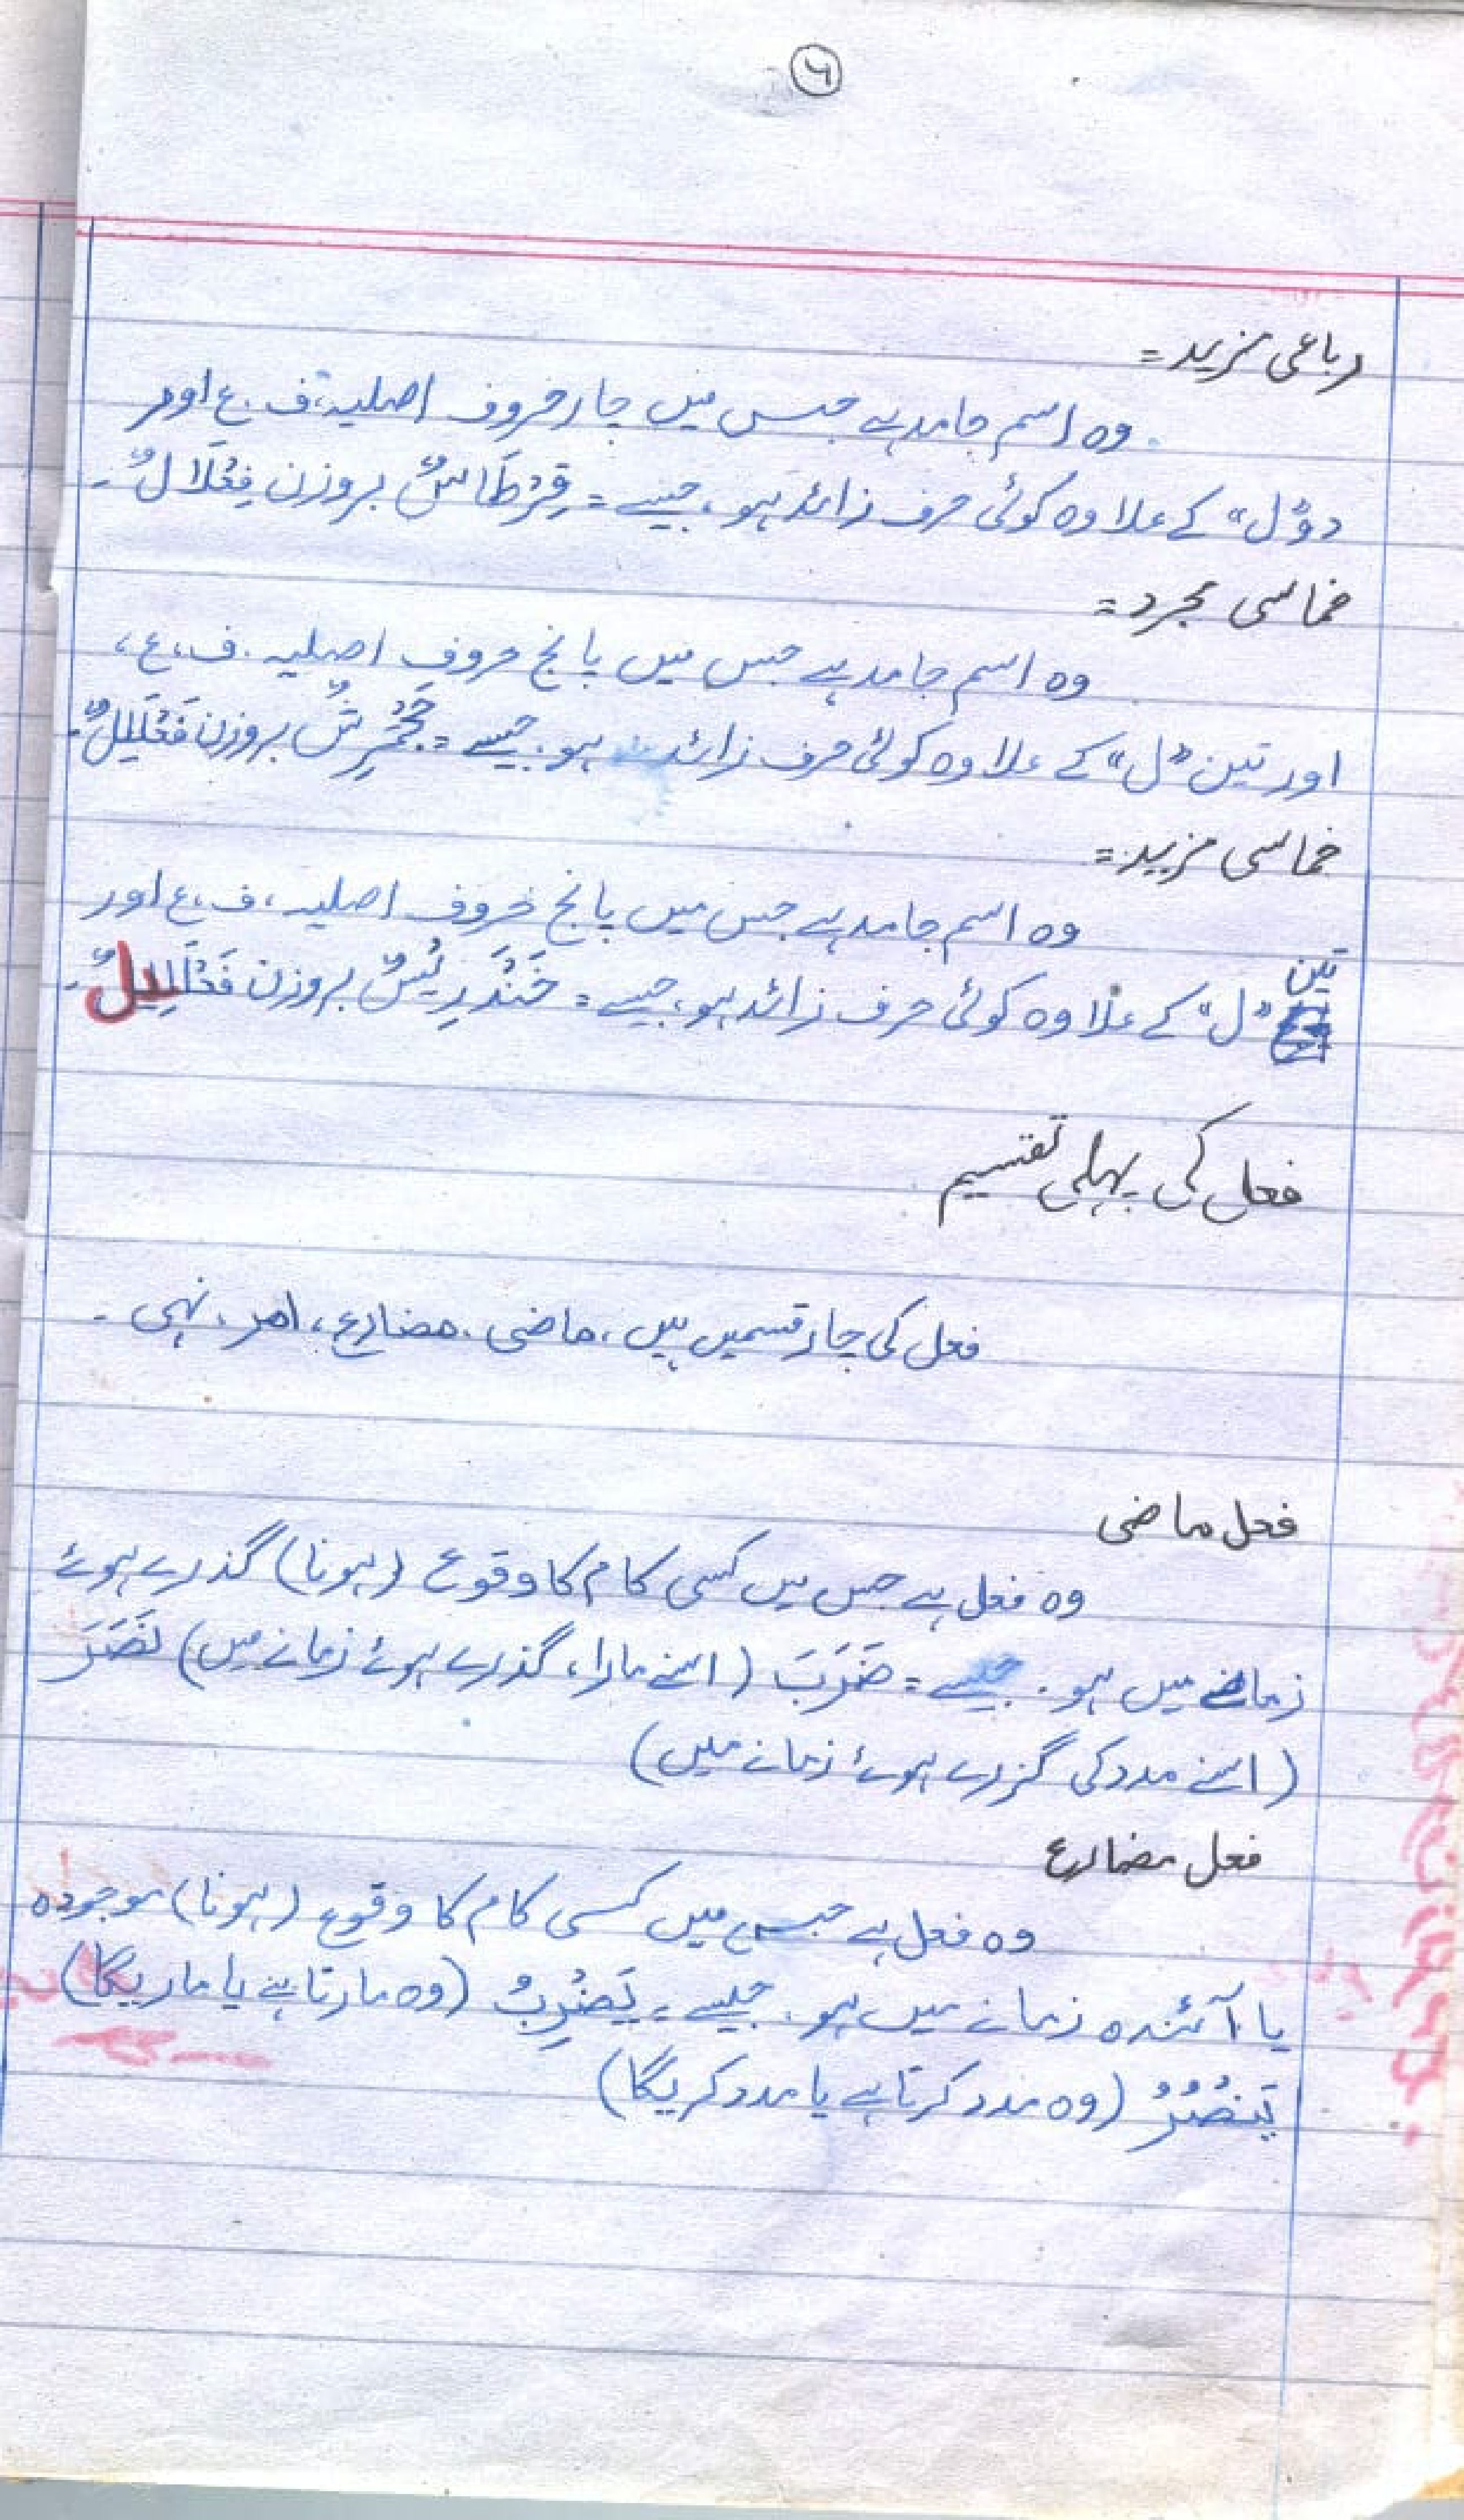 ۶
رباعی مزید =
وہ اسم جامد ہے جس میں چار حروف اصلیہ، ف، ع اور
دو "ل" کے علاوہ کوئی حرف زائد ہو، جیسے = قِرْطَاسٌ بروزن فِعْلَالٌ۔
خماسی مجرد =
وہ اسم جامد ہے جس میں پانچ حروف اصلیہ، ف، ع،
اور تین "ل" کے علاوہ کوئی حرف زائد نہ ہو، جیسے = جَحْمَرِشٌ بروزن فَعْلَلِلٌ۔
خماسی مزید =
وہ اسم جامد ہے جس میں پانچ حروف اصلیہ، ف، ع اور
تین "ل" کے علاوہ کوئی حرف زائد ہو، جیسے = خَنْدَرِیْسٌ بروزن فَعْلَلِیْلٌ۔
فعل کی پہلی تقسیم
فعل کی چار قسمیں ہیں، ماضی، مضارع، امر، نہی ۔
فعل ماضی
وہ فعل ہے جس میں کسی کام کا وقوع (ہونا) گذرے ہوئے
زمانے میں ہو۔ جیسے = ضَرَبَ (اسنے مارا، گذرے ہوئے زمانے میں) نَصَرَ
(اسنے مدد کی گزرے ہوئے زمانے میں)
فعل مضارع
وہ فعل ہے جس میں کسی کام کا وقوع (ہونا) موجودہ
یا آئندہ زمانے میں ہو۔ جیسے = یَضْرِبُ (وہ مارتا ہے یا ماریگا)
یَنْصُرُ (وہ مدد کرتا ہے یا مدد کریگا)